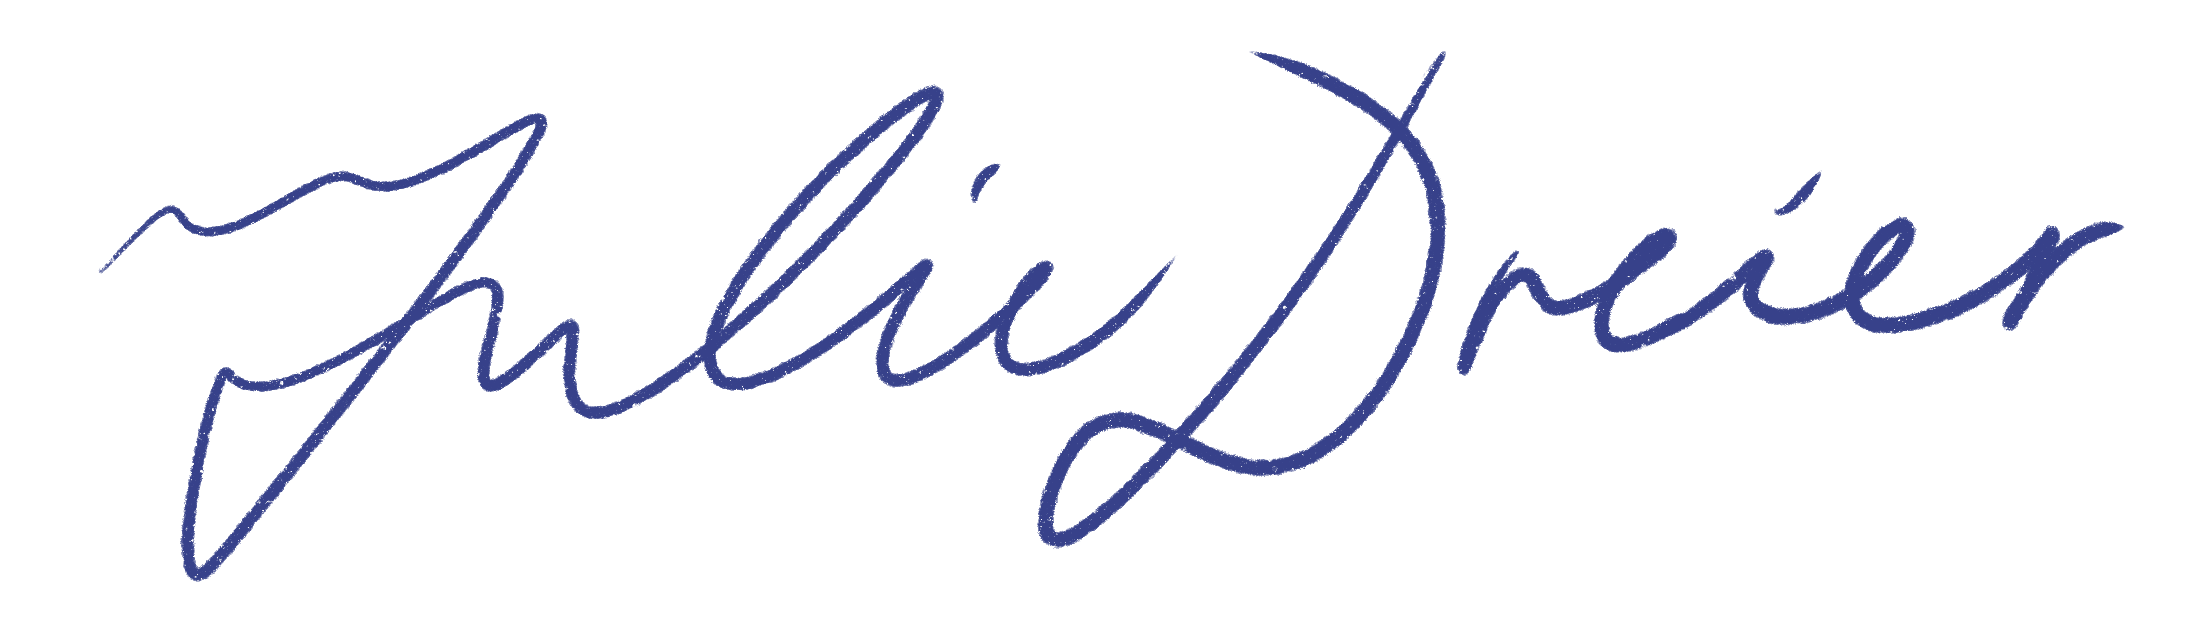 Julie Dreier